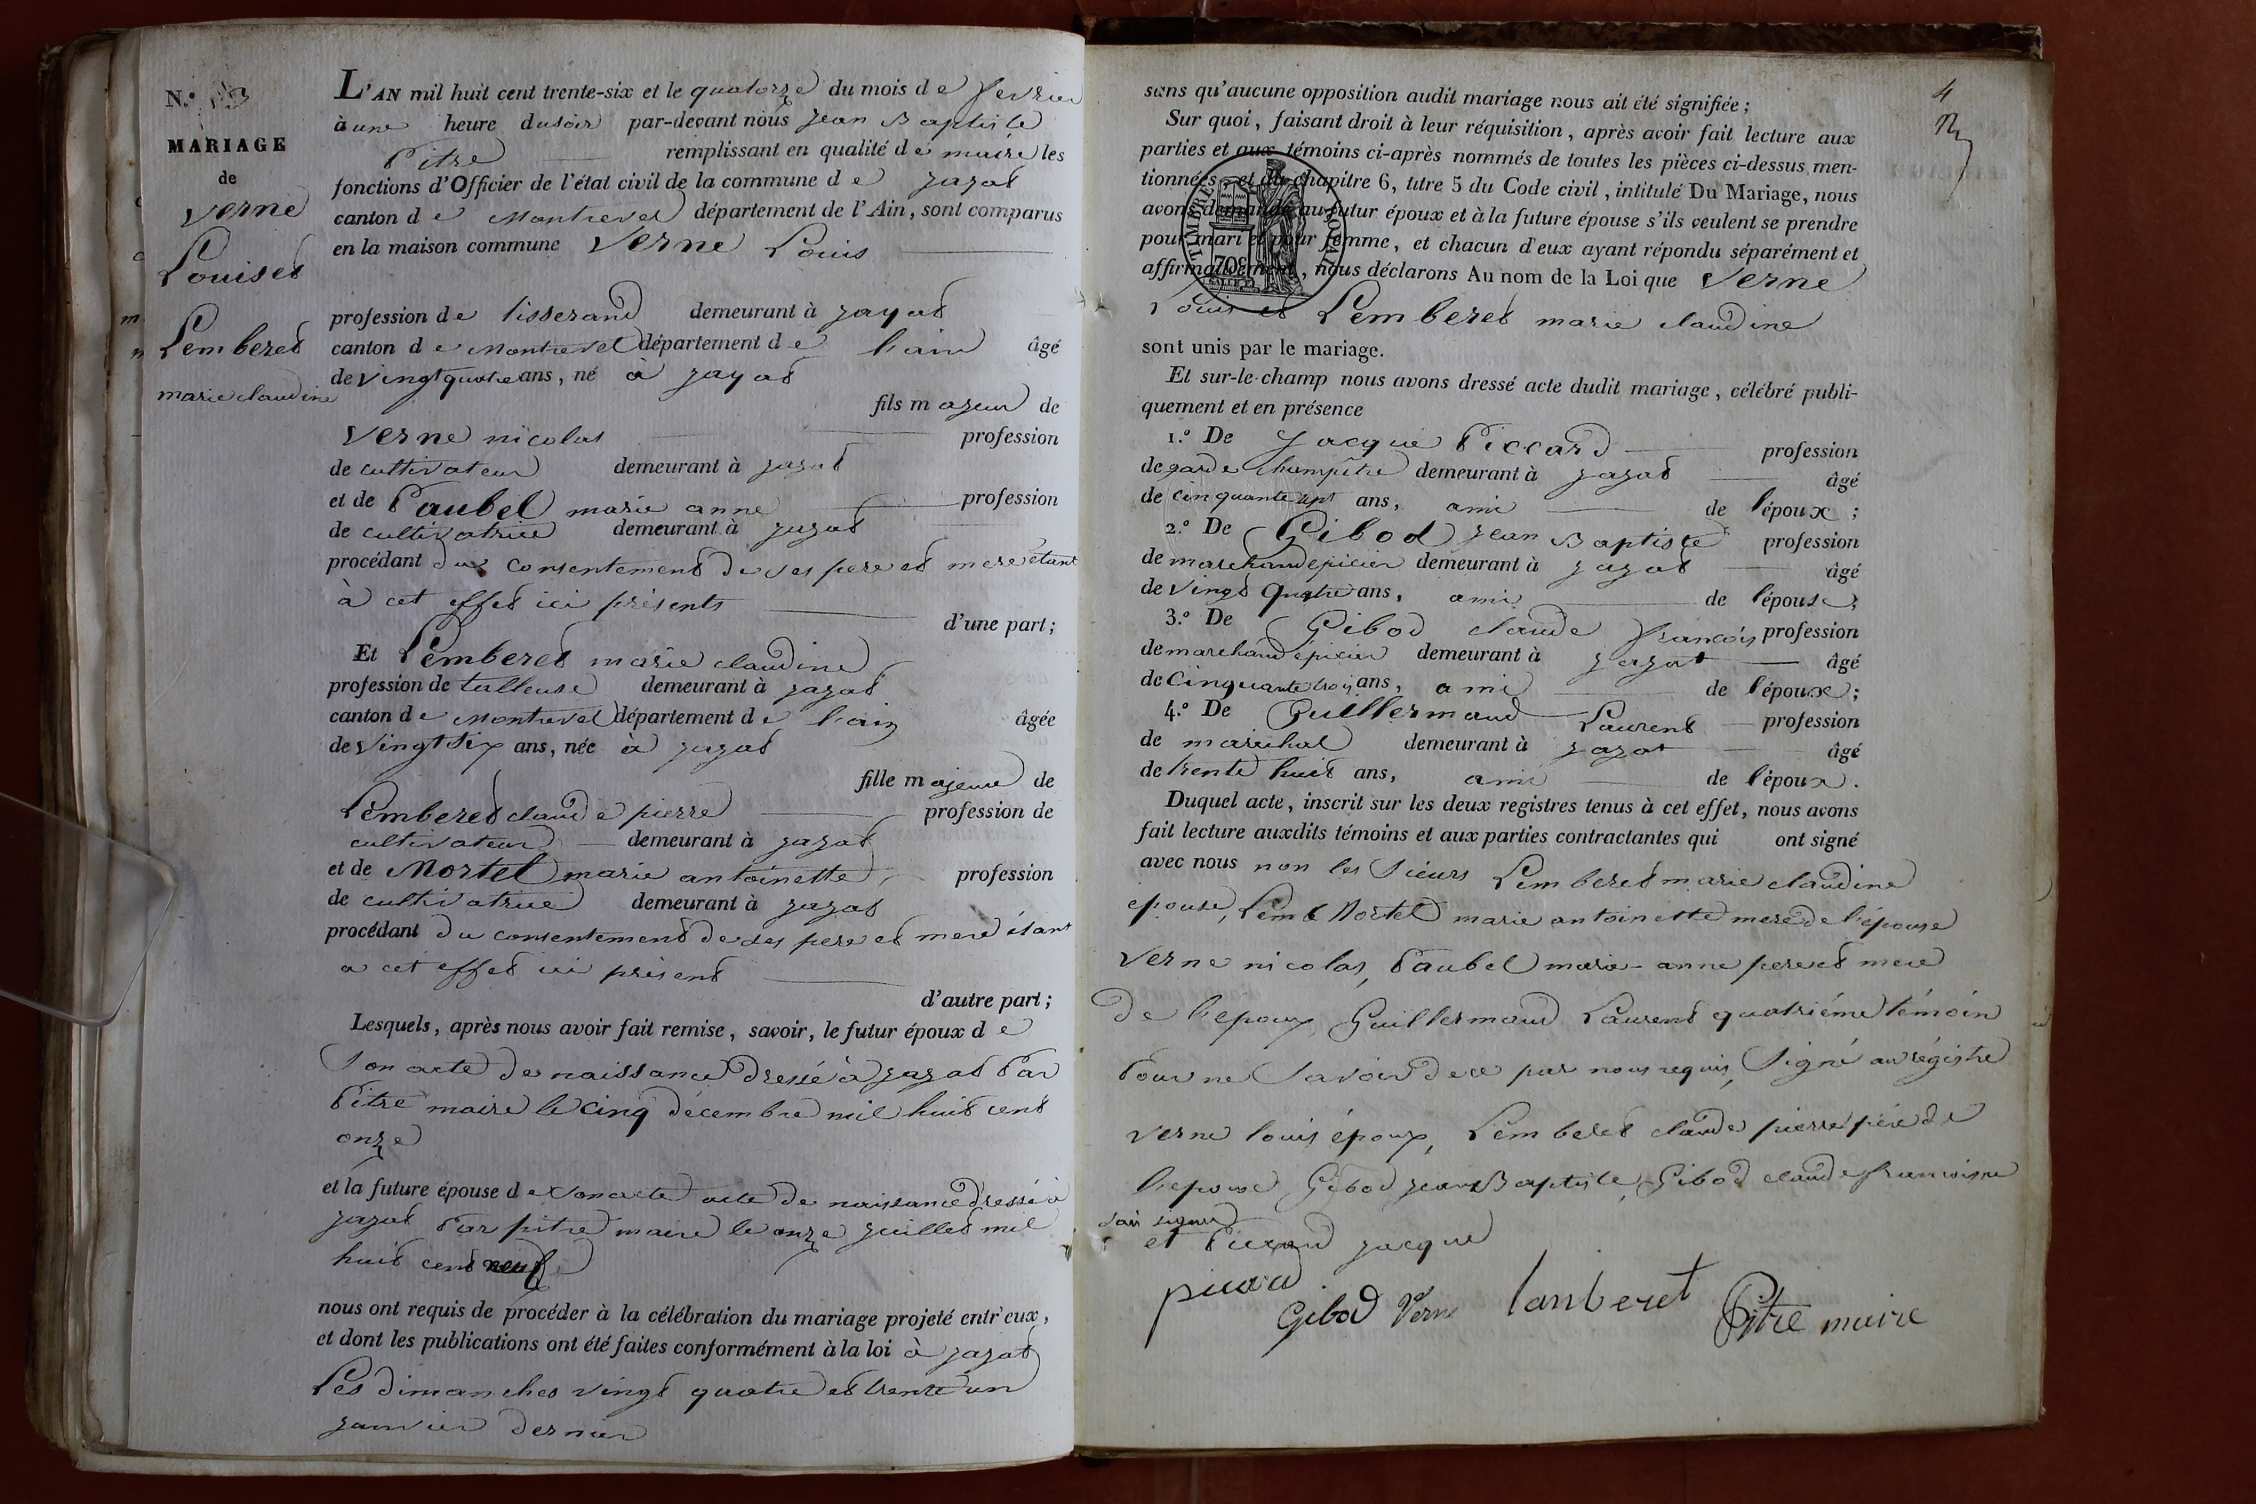 N.º
MARIAGE
de
verne
Louis et
Lemberet
marie claudine
L'AN mil huit cent trente-six et le quatorze du mois de fevrier
à une heure du soir par-devant nous jean Baptiste
Pitre remplissant en qualité de maire les
fonctions d'Officier de l'état civil de la commune de jayat
canton de Montrevel département de l'Ain, sont comparus
en la maison commune Verne Louis
profession de tisserand demeurant à jayat
canton de Montrevel département de l'ain âgé
de vingt quatre ans, né à jayat
fils majeur de
verne nicolas profession
de cultivateur demeurant à jayat
et de Paubel marie anne profession
de cultivatrice demeurant à jayat
procédant du consentement de ses pere et mere étant
à cet effet ici présents
d'une part;
Et Lemberet marie claudine
profession de tailleuse demeurant à jayat
canton de Montrevel département de l'ain âgée
de vingt six ans, née à jayat
fille majeure de
Lemberet claude pierre profession de
cultivateur demeurant à jayat
et de Mortel marie antoinette profession
de cultivatrice demeurant à jayat
procédant du consentement de ses pere et mere étant
a cet effet ici présent
d'autre part;
Lesquels, après nous avoir fait remise, savoir, le futur époux de
son acte de naissance dressé à jayat Par
Pitre maire le cinq décembre mil huit cent
onze
et la future épouse de son acte acte de naissance dressé à
jayat Par pitre maire le onze juillet mil
huit cent neuf
nous ont requis de procéder à la célébration du mariage projeté entr'eux,
et dont les publications ont été faites conformément à la loi à jayat
Les dimanches vingt quatre et trente un
janvier dernier
4
sans qu'aucune opposition audit mariage nous ait été signifiée;
Sur quoi, faisant droit à leur réquisition, après avoir fait lecture aux
parties et aux témoins ci-après nommés de toutes les pièces ci-dessus men-
tionnées, et du chapitre 6, titre 5 du Code civil, intitulé Du Mariage, nous
avons demandé au futur époux et à la future épouse s'ils veulent se prendre
pour mari et pour femme, et chacun d'eux ayant répondu séparément et
affirmativement, nous déclarons Au nom de la Loi que Verne
Louis et Lemberet marie claudine
TIMBRE ROYAL
70c
sont unis par le mariage.
Et sur-le-champ nous avons dressé acte dudit mariage, célébré publi-
quement et en présence
1.º De Jacque Piccard profession
de garde champître demeurant à jayat âgé
de cinquante sept ans, ami de l'époux;
2.º De Gibod jean Baptiste profession
de marchand épicier demeurant à jayat âgé
de vingt quatre ans, ami de l'épouse;
3.º De Gibod claude francois profession
de marchand épicier demeurant à jayat âgé
de Cinquante trois ans, ami de l'époux;
4.º De Guillermand Laurent profession
de maréchal demeurant à jayat âgé
de trente huit ans, ami de l'époux.
Duquel acte, inscrit sur les deux registres tenus à cet effet, nous avons
fait lecture auxdits témoins et aux parties contractantes qui ont signé
avec nous non les sieurs Lemberet marie claudine
epouse, Mortel marie antoinette mere de l'épouse
verne nicolas, Paubel marie-anne pere et mere
de l'epoux, Guillermand Laurent quatriéme témoin
Pour ne savoir de ce par nous requis, signé au régistre
verne louis époux, Lemberet claude pierre pére de
l'epouse Gibod jean Baptiste, Gibod claude francois
et Piccard jacque
picard
Gibod Verne lanberet Pitre maire